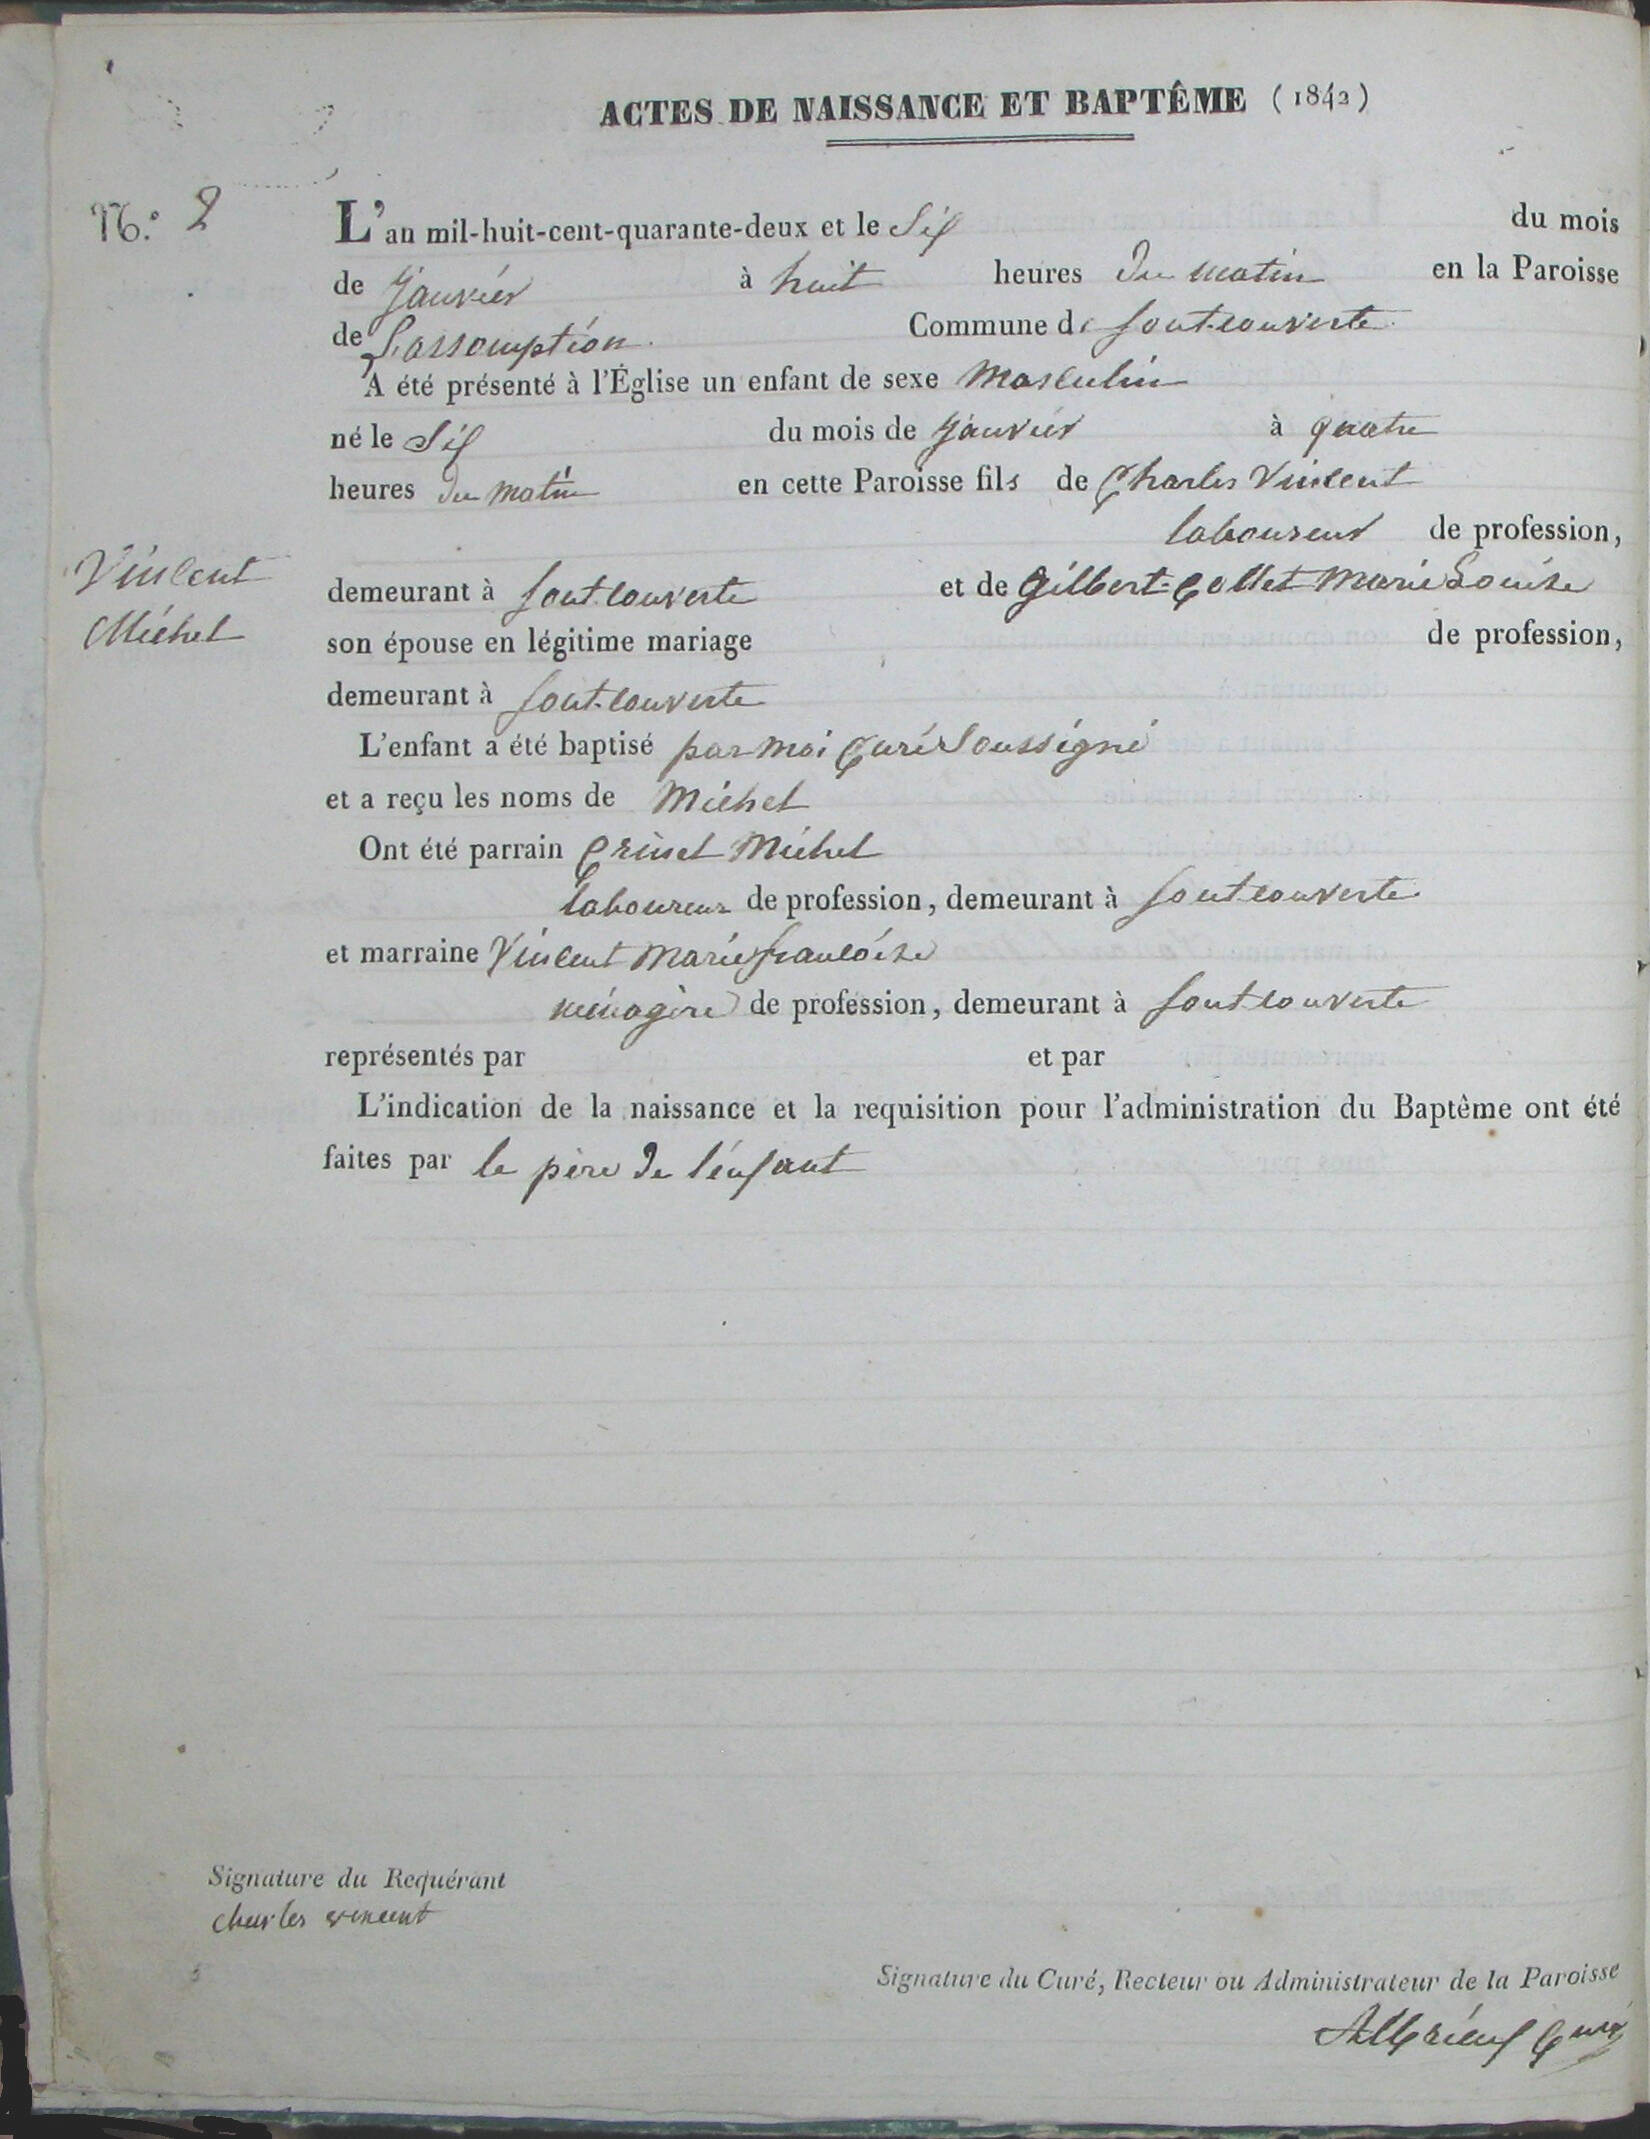 ACTES DE NAISSANCE ET BAPTÊME (1842)
N.º 2
L'an mil-huit-cent-quarante-deux et le Six du mois
de Janvier à huit heures du matin en la Paroisse
de L'assomption. Commune de fontcouverte
A été présenté à l'Église un enfant de sexe Masculin
né le Six du mois de Janvier à quatre
heures du matin en cette Paroisse fils de Charles Vincent
laboureur de profession,
Vincent
Michel
demeurant à fontcouverte et de Gilbert-Collet Marie Louise
son épouse en légitime mariage de profession,
demeurant à fontcouverte
L'enfant a été baptisé par moi Curé Soussigné
et a reçu les noms de Michel
Ont été parrain Michel
laboureur de profession, demeurant à fontcouverte
et marraine Vincent Marie francoise
ménagère de profession, demeurant à fontcouverte
représentés par et par
L'indication de la naissance et la requisition pour l'administration du Baptême ont été
faites par le père de l'enfant
Signature du Requérant
charles vincent
Signature du Curé, Recteur ou Administrateur de la Paroisse
Curé